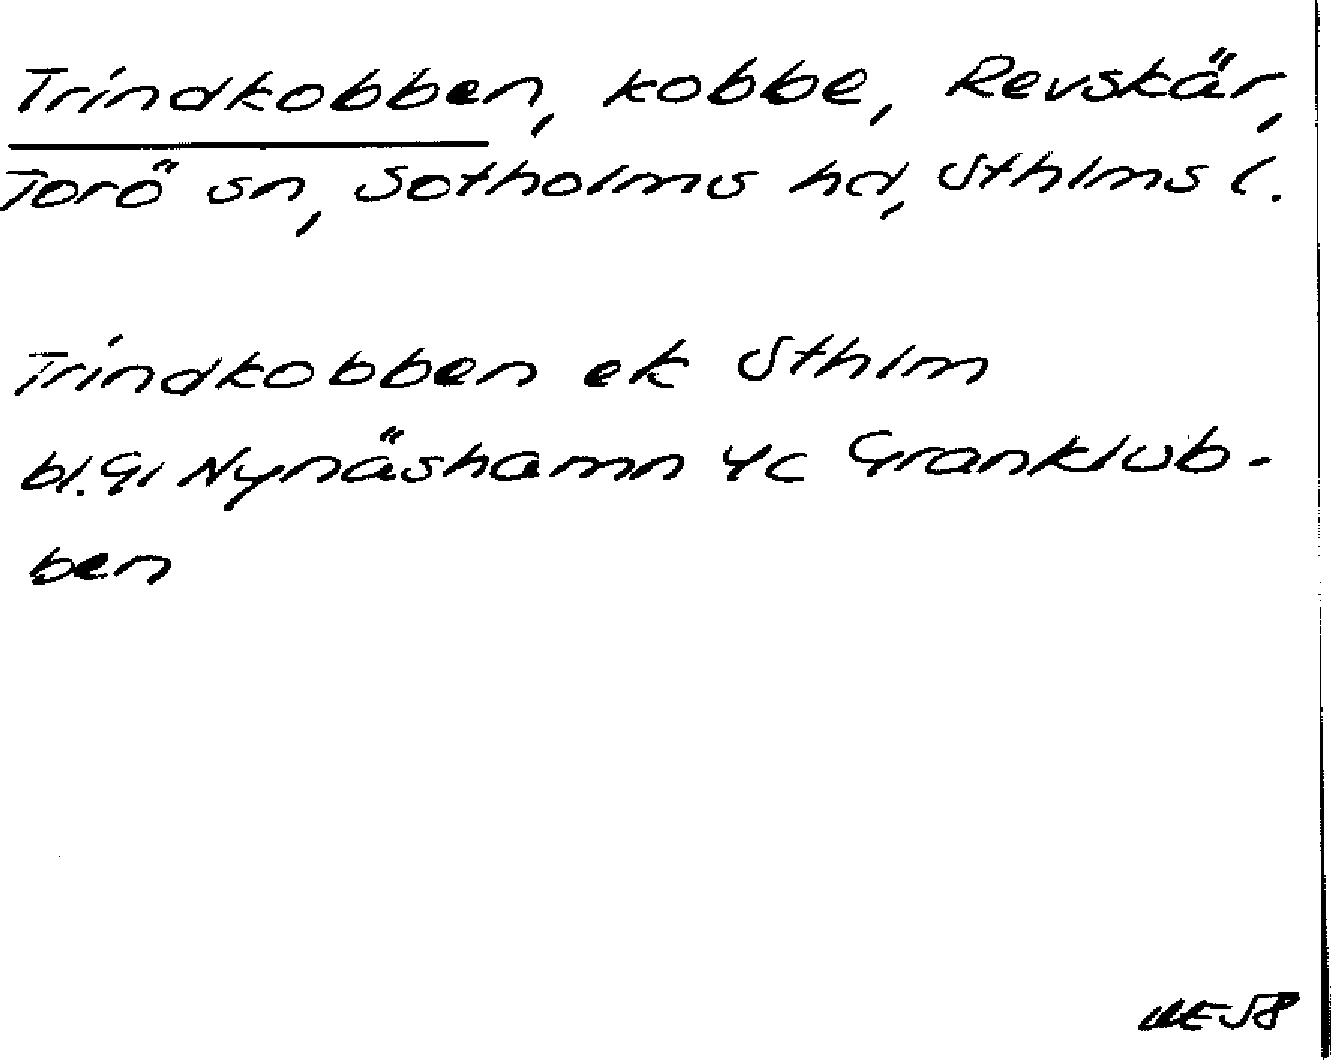 Trindkobben, kobbe, Revskär,
Torö sn, Sotholms hd, Sthlms l.
Trindkobben ek Sthlm
bl. 9i Nynäshamn 4c Granklub-
ben
58